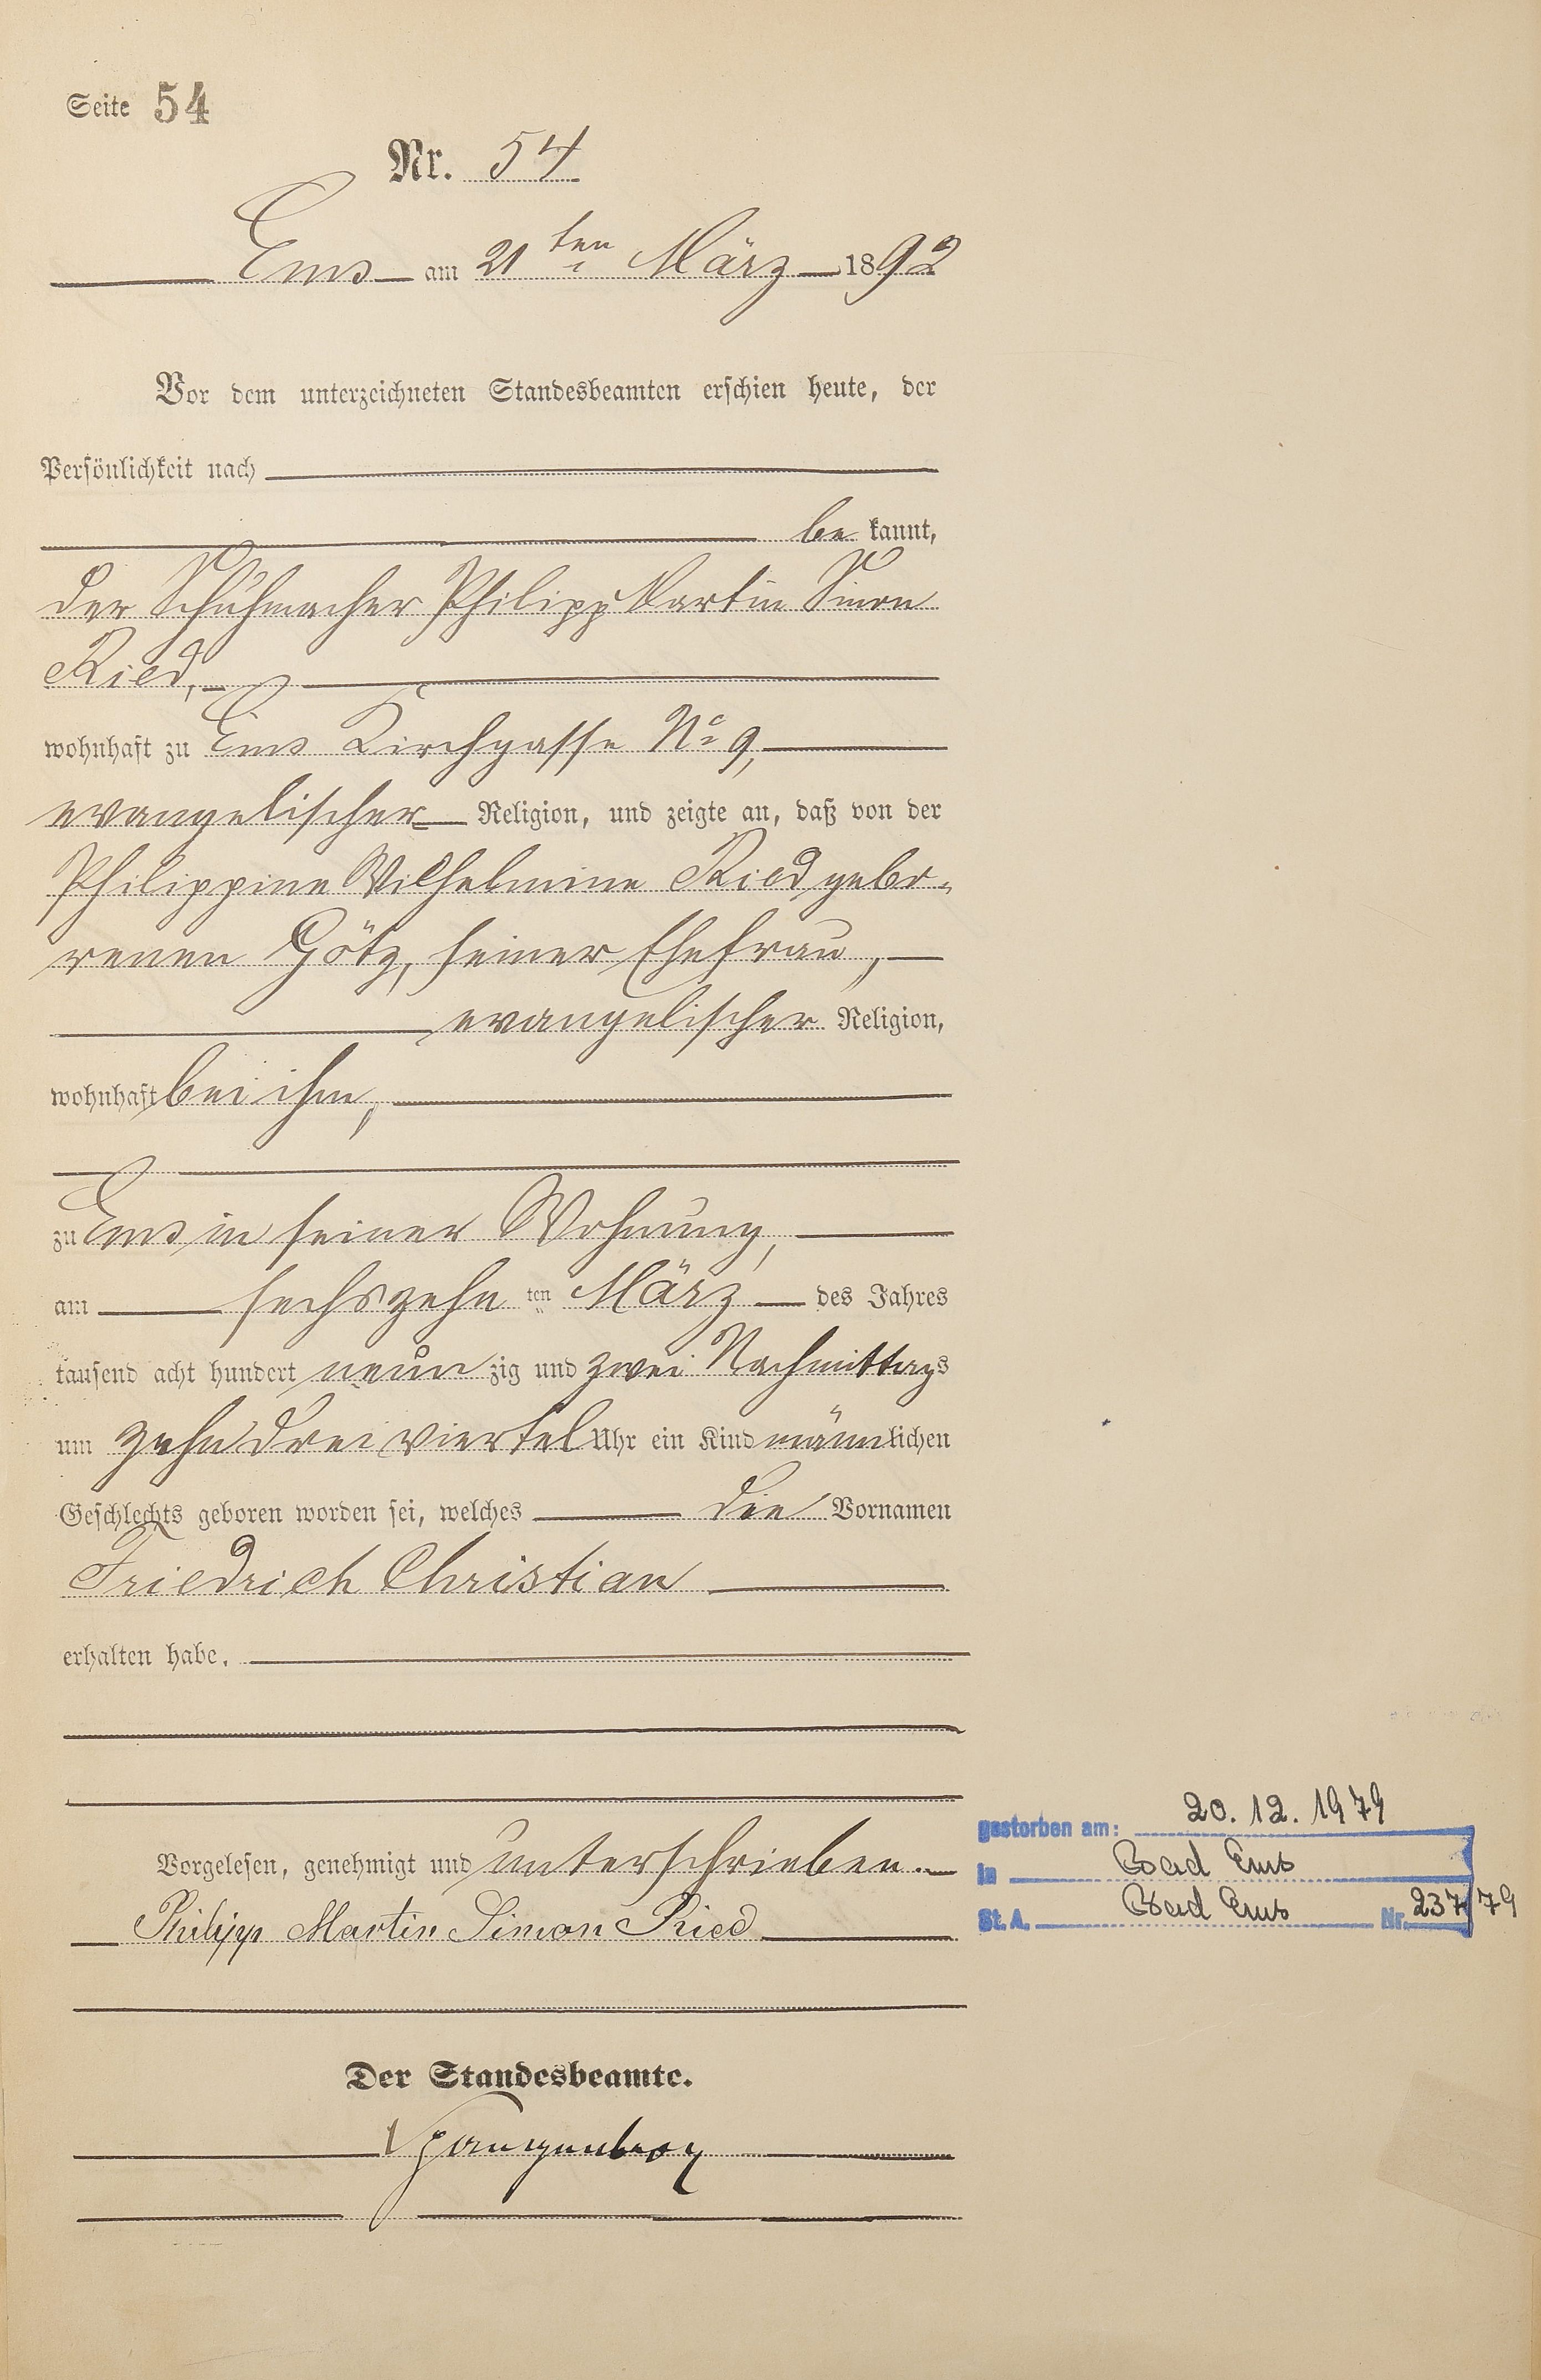 Seite 54
Nr. 54
Ems am 21ten März 1892
Vor dem unterzeichneten Standesbeamten erschien heute, der
Persönlichkeit nach
be kannt,
der Schuhmacher Philipp Martin Simon
Ried,
wohnhaft zu Ems Kirchgasse No 9,
evangelischer Religion, und zeigte an, daß von der
Philippine Wilhelmine Ried gebo-
renen Götz, seiner Ehefrau,
evangelischer Religion,
wohnhaft bei ihm,
zu Ems in seiner Wohnung,
am sechszehn ten März des Jahres
tausend acht hundert neun zig und zwei Nachmittags
um zehn drei viertel Uhr ein Kind männlichen
Geschlechts geboren worden sei, welches die Vornamen
Friedrich Christian
erhalten habe.
Vorgelesen, genehmigt und unterschrieben.
Philipp Martin Simon Ried
gestorben am: 20.12.1979
in Bad Ems
St. A. Bad Ems Nr. 237/79
Der Standesbeamte.